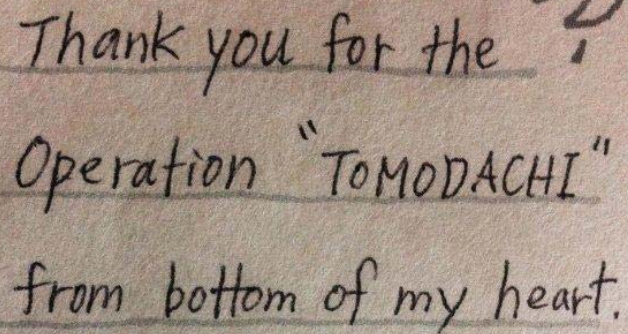 Thank you for the
Operation "TOMODACHI"
from bottom of my heart.